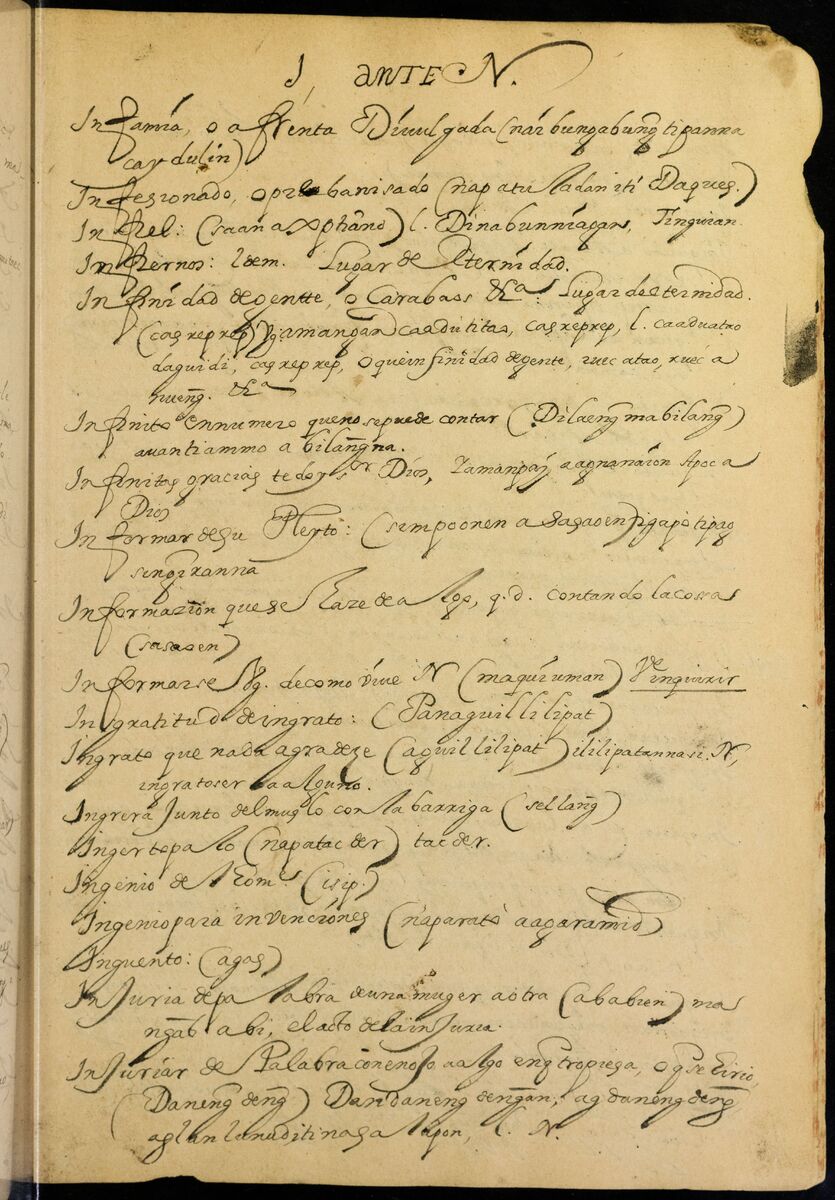 I, ANTE N.
Infamia, o afrenta Divulgada (naibungabung̃ tipanna
cay dulin)
Infesionado, o
Infiel: l. Dinabunniagan, Tinguian.
Infiernos: Idem. Lugar de Eternidad.
Infinidad degentte, o Carabaos &ª: Lugar de eternidad.
(casreprep) casreprep, l.
daguidi, casreprep, oqueinfinidad degente,
nueng̃. &ª
Infinito ennumero queno sepuede contar (Dilaeng̃ mabilang̃)
auantiammo a bilang̃na.
Infinitas gracias tedoy sʳ Dios, apoc a
Dios
Informar desu Pleyto: (simpoonen a sasaoen)
singiranna
Informazion que se haze de algo, q.d. contando lacosas
(sasaoen)
Informarse Vg. decomo vive N (maquiuman) Vᵉ inquirir
Ingratitud deingrato: (Panaguillilipat)
Ingrato que nada agradeze (aguillilipat) ililipatannasi. N,
ingratoser aalguno.
Ingrera Junto delmuslo con la barriga (sellang̃)
Ingertopalo (napatacder) tacder.
Ingenio de hom.ᵉ (isip.)
Ingeniopara invenciones (naparato aagaramid)
Inguento: (agas)
InJuria depalabra deuna muger aotra (ababien) ma
ng̃ab abi, elacto delainJuria.
InJuriar de Palabra conenoJo aalgo enq̃ tropiesa, oq̃ se hirio,
(Daneng̃ deng̃) Dandaneng deng̃an, ag daneng deng̃
aglanlanuditinasalapon, l. N.